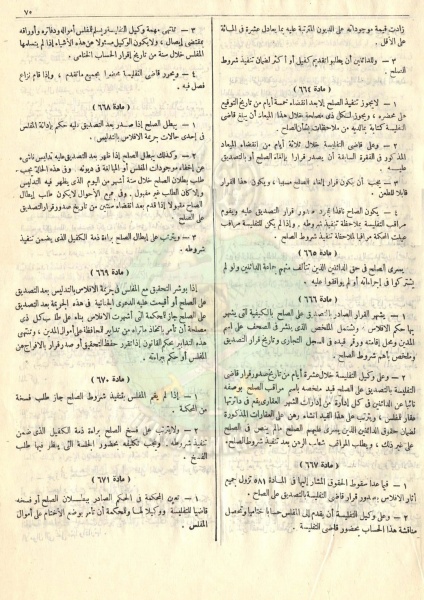 ٧٥
زادت قيمة موجوداته على الديون المترتبة عليه بما يعادل عشرة في المائة
على الأقل .
٣ – وللدائنين أن يطلبوا تقديم كفيل أو اكثر لضمان تنفيذ شروط
الصلح .
( مادة ٦٦٤ )
١ – لايجوز تنفيذ الصلح الا بعد انقضاء خمسة أيام من تاريخ التوقيع
على محضره ، ويجوز لكل ذى مصلحة خلال هذا الميعاد أن يبلغ قاضي
التفليسة كتابة بمالديه من ملاحظات بشأن الصلح .
٢ – وعلى قاضي التفليسة خلال ثلاثة أيام من انقضاء الميعاد
المذكور في الفقرة السابقة أن يصدر قرارا بالغاء الصلح أو بالتصديق
عليه .
٣ – يجب أن يكون قرار الغاء الصلح مسببا ، ويكون هذا القرار
قابلا للطعن .
٤ – يكون الصلح نافذا بمجرد صدور قرار التصديق عليه ويقوم
مراقب التفليسة بملاحظة تنفيذ شروطه . واذا لم يكن للتفليسة مراقب
عينت المحكمة مراقبا لملاحظة تنفيذ شروط الصلح .
( مادة ٦٦٥ )
يسرى الصلح في حق الدائنين الذين تتألف منهم جماعة الدائنين ولو لم
يشتركوا في إجراءاته أو لم يوافقوا عليه .
( مادة ٦٦٦ )
١ – يشهر القرار الصادر بالتصديق على الصلح بالكيفية التي يشهر
بها حكم الافلاس . ويشتمل الملخص الذى ينشر في الصحف على اسم
المدين ومحل إقامته ورقم قيده في السجل التجارى وتاريخ قرار التصديق
وملخص أهم شروط الصلح .
٢ – وعلى وكيل التفليسة خلال عشرة أيام من تاريخ صدور قرار قاضي
التفليسة بالتصديق على الصلح قيد ملخصه باسم مراقب الصلح بوصفه
نائبا عن الدائنين في كل إدارة من إدارات الشهر العقارى يقع في دائرتها
عقار للمفلس ، ويترتب على هذا القيد انشاء رهن على العقارات المذكورة
لضمان حقوق الدائنين الذين يسرى عليهم الصلح مالم ينص في الصلح
على غير ذلك ، ويطلب المراقب شطب الرهن بعد تنفيذ شروط الصلح .
( مادة ٦٦٧ )
١ – فيما عدا سقوط الحقوق المشار إليها في المادة ٥٨١ تزول جميع
آثار الافلاس بصدور قرار قاضي التفليسة بالتصديق على الصلح .
٢ – وعلى وكيل التفليسة أن يقدم إلى المفلس حسابا ختاميا وتحصل
مناقشة هذا الحساب بحضور قاضي التفليسة .
٣ – تنتهى مهمة وكيل التفليسة ويسلم المفلس أمواله ودفاتره وأوراقه
بمقتضى إيصال ، ولايكون الوكيل مسئولا عن هذه الأشياء إذا لم يتسلمها
المفلس خلال سنة من تاريخ إقرار الحساب الختامي .
٤ – ويحرر قاضي التفليسة محضرا بجميع ماتقدم ، وإذا قام نزاع
فصل فيه .
( مادة ٦٦٨ )
١ – يبطل الصلح إذا صدر بعد التصديق عليه حكم بإدانة المفلس
في إحدى حالات جريمة الافلاس بالتدليس .
٢ – وكذلك يبطل الصلح إذا ظهر بعد التصديق عليه تدليس ناشئ
عن إخفاء موجودات المفلس أو المبالغة في ديونه . وفى هذه الحالة يجب
طلب بطلان الصلح خلال ستة أشهر من اليوم الذى يظهر فيه التدليس
والا كان الطلب غير مقبول . وفى جميع الأحوال لايكون طلب إبطال
الصلح مقبولا إذا قدم بعد انقضاء سنتين من تاريخ صدور قرار التصديق
على الصلح .
٣ – ويترتب على إبطال الصلح براءة ذمة الكفيل الذى يضمن تنفيذ
شروطه .
( مادة ٦٦٩ )
إذا بوشر التحقيق مع المفلس في جريمة الافلاس بالتدليس بعد التصديق
على الصلح أو أقيمت عليه الدعوى الجنائية في هذه الجريمة بعد التصديق
على الصلح جاز للمحكمة التى أشهرت الافلاس بناء على طلب كل ذى
مصلحة أن تأمر باتخاذ ماتراه من تدابير للمحافظة على أموال المدين ، وتنتهى
هذه التدابير بحكم القانون إذا تقرر حفظ التحقيق أو صدر قرار بالافراج عن
المفلس أو حكم ببراءته .
( مادة ٦٧٠ )
١ – إذا لم يقم المفلس بتنفيذ شروط الصلح جاز طلب فسخه
من المحكمة .
٢ – ولايترتب على فسخ الصلح براءة ذمة الكفيل الذى ضمن
تنفيذ شروطه . ويجب تكليفه بحضور الجلسة التى ينظر فيها طلب
الفسخ .
( مادة ٦٧١ )
١ – تعين المحكمة في الحكم الصادر ببطلان الصلح أو فسخه
قاضيا للتفليسة ووكيلا لها وللمحكمة أن تأمر بوضع الأختام على أموال
المفلس .